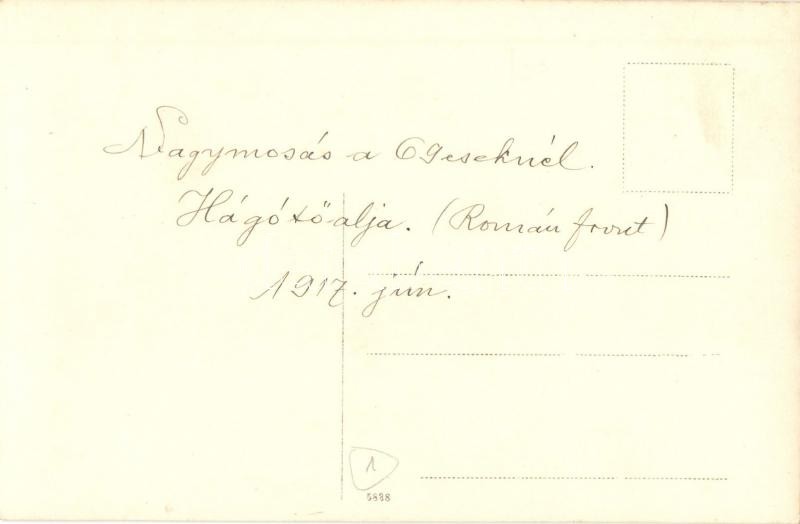 Nagymosás a 69eseknél.
Hágótőalja. (Román front)
1917. jún.
1
5888